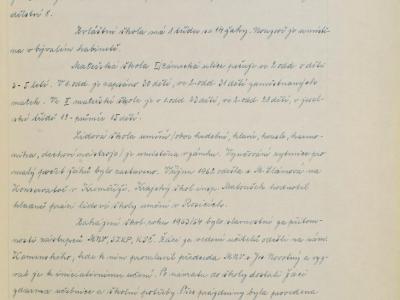 dětství 8.
Zvláštní škola má 1 třídu se 14 žáky. Nouzově je umístě-
na v bývalém kabinetě.
Mateřská škola I/zámecká ulice pracuje ve 2 odd. s dětmi
3-5 letí. V 1. odd. je zapsáno 30 dětí, ve 2. odd. 31 dětí zaměstnaných
matek. Ve II. mateřské škole je v 1. odd. 23 dětí, ve 2. odd. 28 dětí, v jesel-
ské třídě 19 - průměr 15 dětí.
Lidová škola umění /obor hudební, klavír, housle, harmo-
nika, dechové nástroje/ je umístěna v zámku. Vyučování rytmice pro
malý počet žáků bylo zastaveno. Října 1962 odešla s.
Konservatoř v Kroměříži. Krajský škol. insp. hodnotil
kladně práci lidové školy umění v Rosicích.
Zahájení škol. roku 1963/64 bylo slavnostní za přítom-
nosti zástupců MNV, SRPŠ, KSČ. Žáci za vedení učitelů odešli na nám.
kde k nim promluvil předseda MNV s. Jos. Novotný a vyz-
val je k iniciativnímu učení. Po návratu do školy dostali žáci
zdarma učebnice a školní potřeby. Přes prázdniny byla provedena